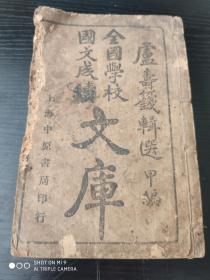 盧壽籛輯選 甲編
全國學校
國文成績
文庫
上海中原書局印行
SHOT ON MI 9 SE
AI TRIPLE CAMERA